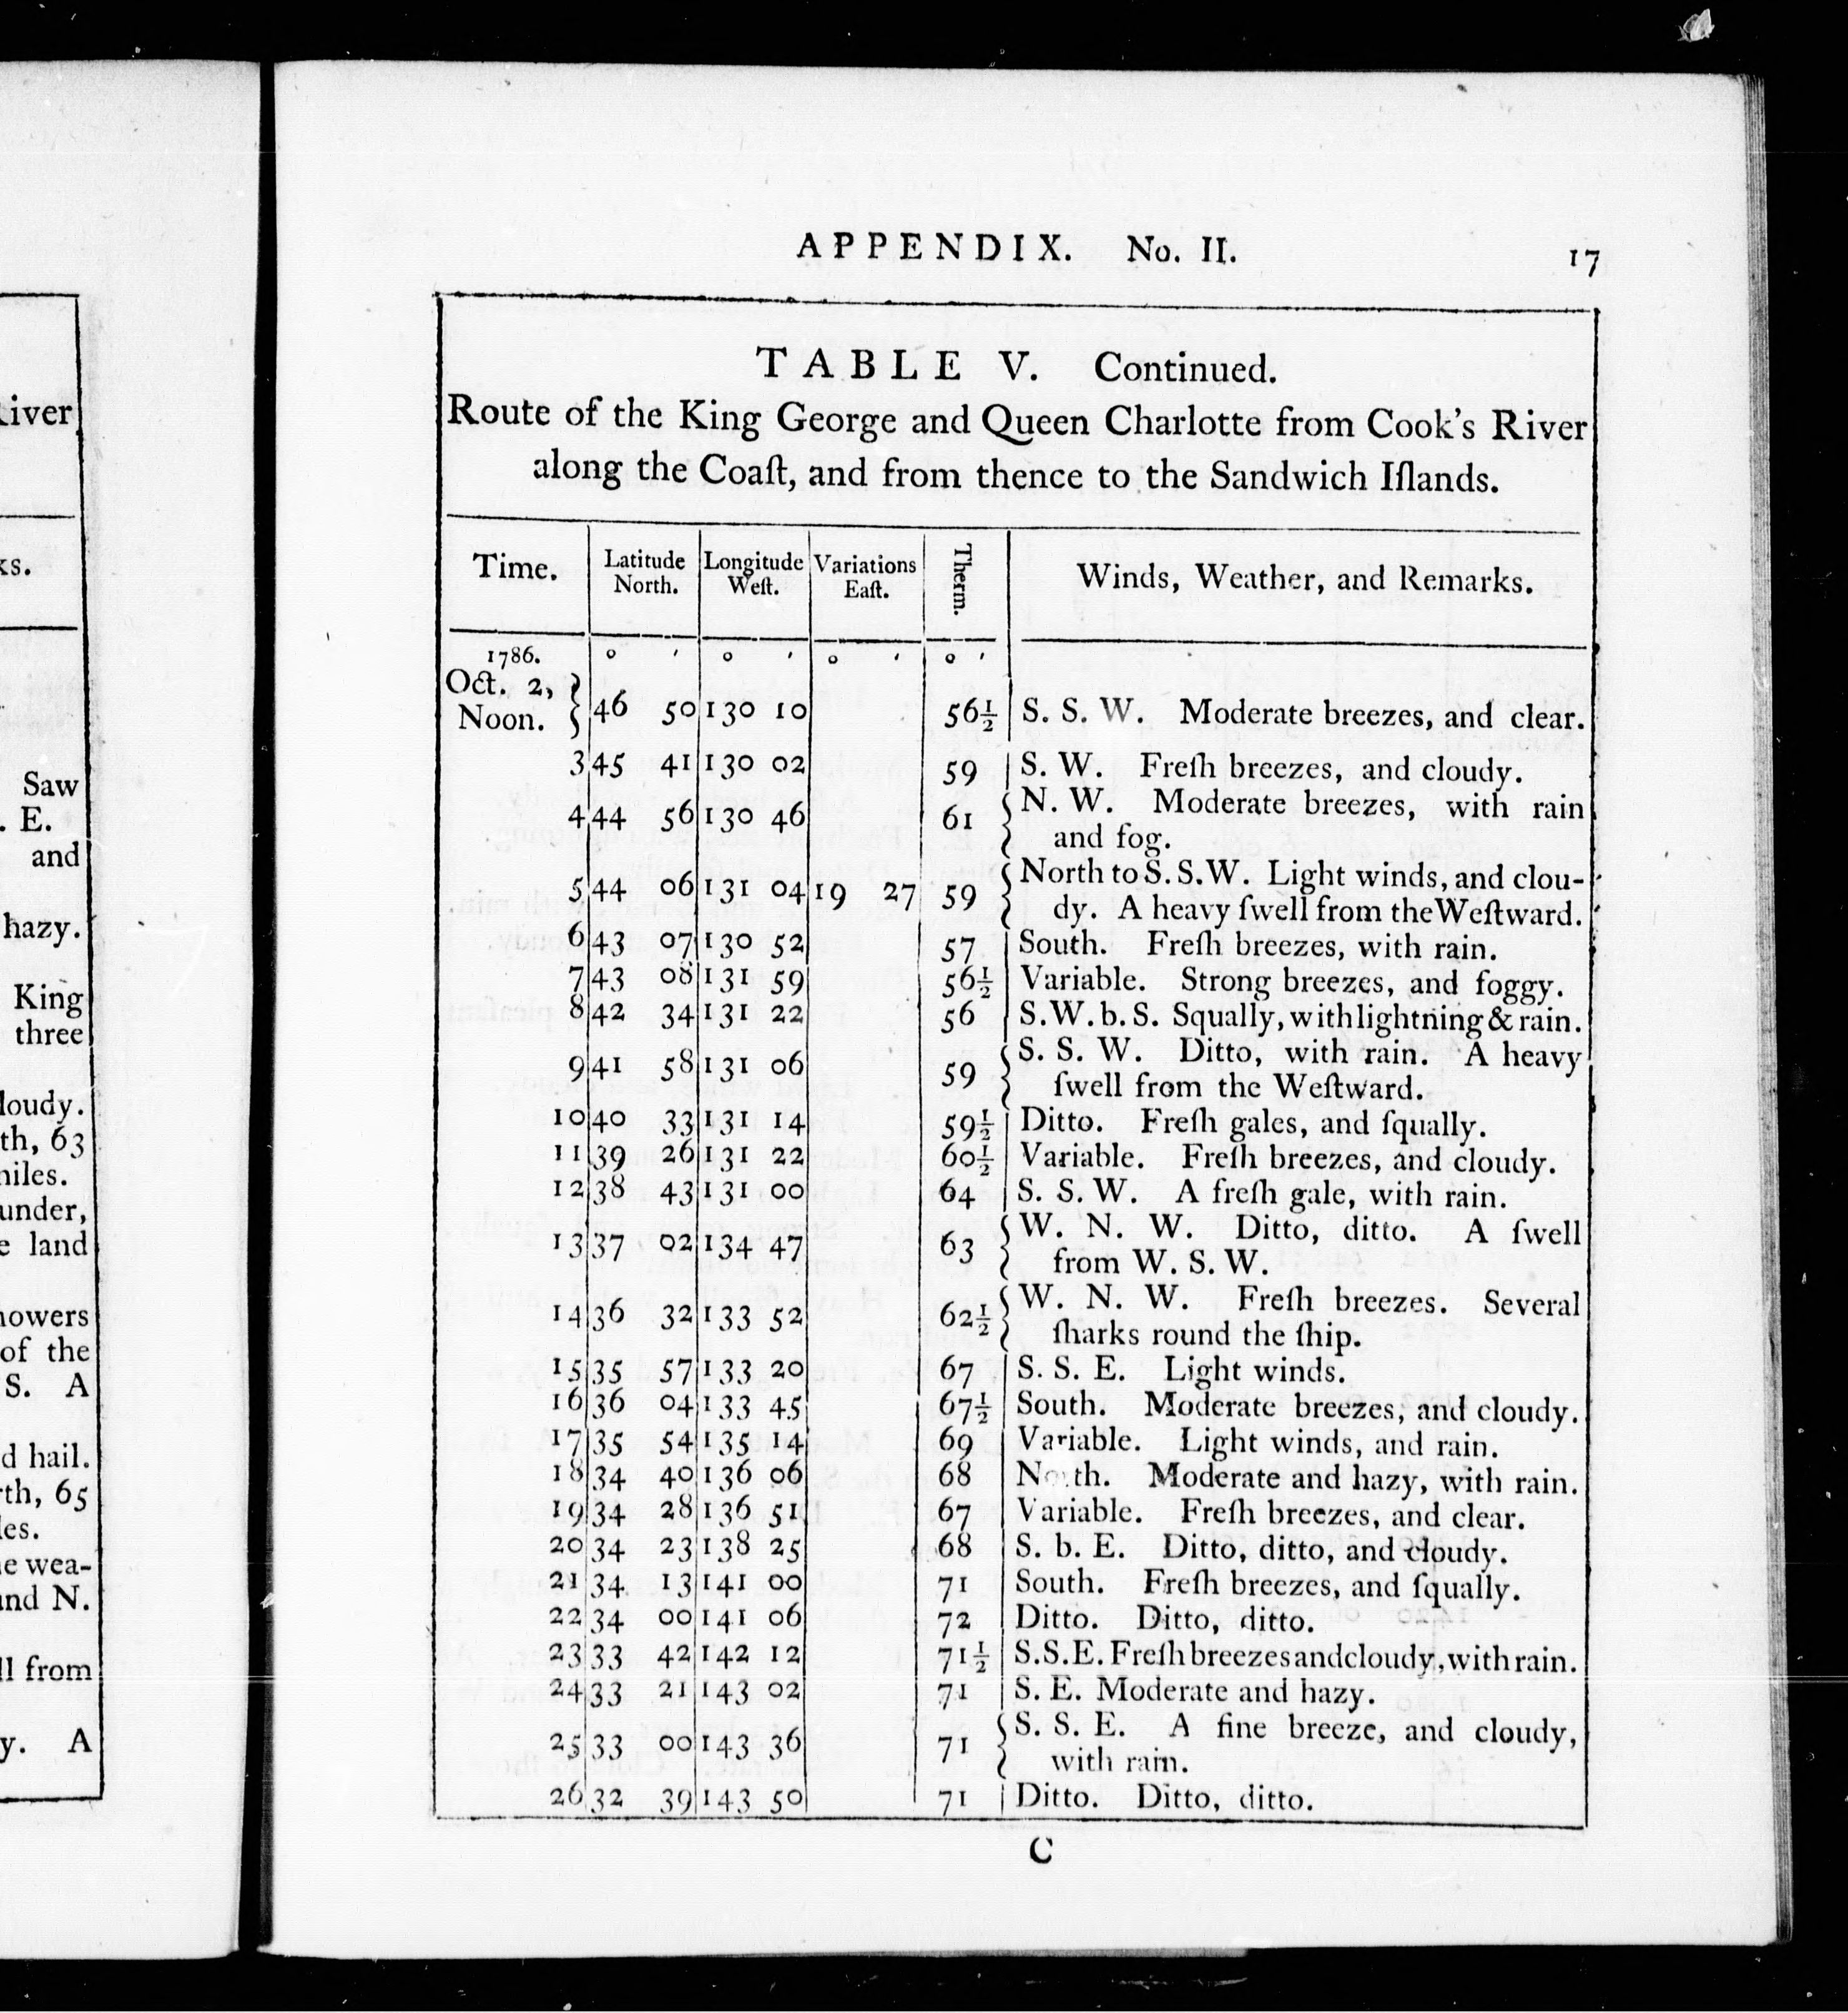 iver
ks.
Saw
. E.
and
hazy.
King
three
loudy.
th, 63
niles.
under,
e land
nowers
of the
S. A
d hail.
rth, 65
les.
e wea-
and N.
ll from
y. A
APPENDIX. No. II. 17
TABLE V. Continued.
Route of the King George and Queen Charlotte from Cook's River
along the Coaſt, and from thence to the Sandwich Iſlands.
Time. Latitude North. Longitude Weſt. Variations Eaſt. Therm. Winds, Weather, and Remarks.
1786. o ′ o ′ o ′ o ′
Oct. 2,
Noon. } 46 50 130 10 56½ S. S. W. Moderate breezes, and clear.
3 45 41 130 02 59 S. W. Freſh breezes, and cloudy.
4 44 56 130 46 61 { N. W. Moderate breezes, with rain
and fog.
5 44 06 131 04 19 27 59 { North to S. S. W. Light winds, and clou-
dy. A heavy ſwell from the Weſtward.
6 43 07 130 52 57 South. Freſh breezes, with rain.
7 43 08 131 59 56½ Variable. Strong breezes, and foggy.
8 42 34 131 22 56 S. W. b. S. Squally, with lightning & rain.
9 41 58 131 06 59 { S. S. W. Ditto, with rain. A heavy
ſwell from the Weſtward.
10 40 33 131 14 59½ Ditto. Freſh gales, and ſqually.
11 39 26 131 22 60½ Variable. Freſh breezes, and cloudy.
12 38 43 131 00 64 S. S. W. A freſh gale, with rain.
13 37 02 134 47 63 { W. N. W. Ditto, ditto. A ſwell
from W. S. W.
14 36 32 133 52 62½ { W. N. W. Freſh breezes. Several
ſharks round the ſhip.
15 35 57 133 20 67 S. S. E. Light winds.
16 36 04 133 45 67½ South. Moderate breezes, and cloudy.
17 35 54 135 14 69 Variable. Light winds, and rain.
18 34 40 136 06 68 North. Moderate and hazy, with rain.
19 34 28 136 51 67 Variable. Freſh breezes, and clear.
20 34 23 138 25 68 S. b. E. Ditto, ditto, and cloudy.
21 34 13 141 00 71 South. Freſh breezes, and ſqually.
22 34 00 141 06 72 Ditto. Ditto, ditto.
23 33 42 142 12 71½ S. S. E. Freſh breezes and cloudy, with rain.
24 33 21 143 02 71 S. E. Moderate and hazy.
25 33 00 143 36 71 { S. S. E. A fine breeze, and cloudy,
with rain.
26 32 39 143 50 71 Ditto. Ditto, ditto.
C